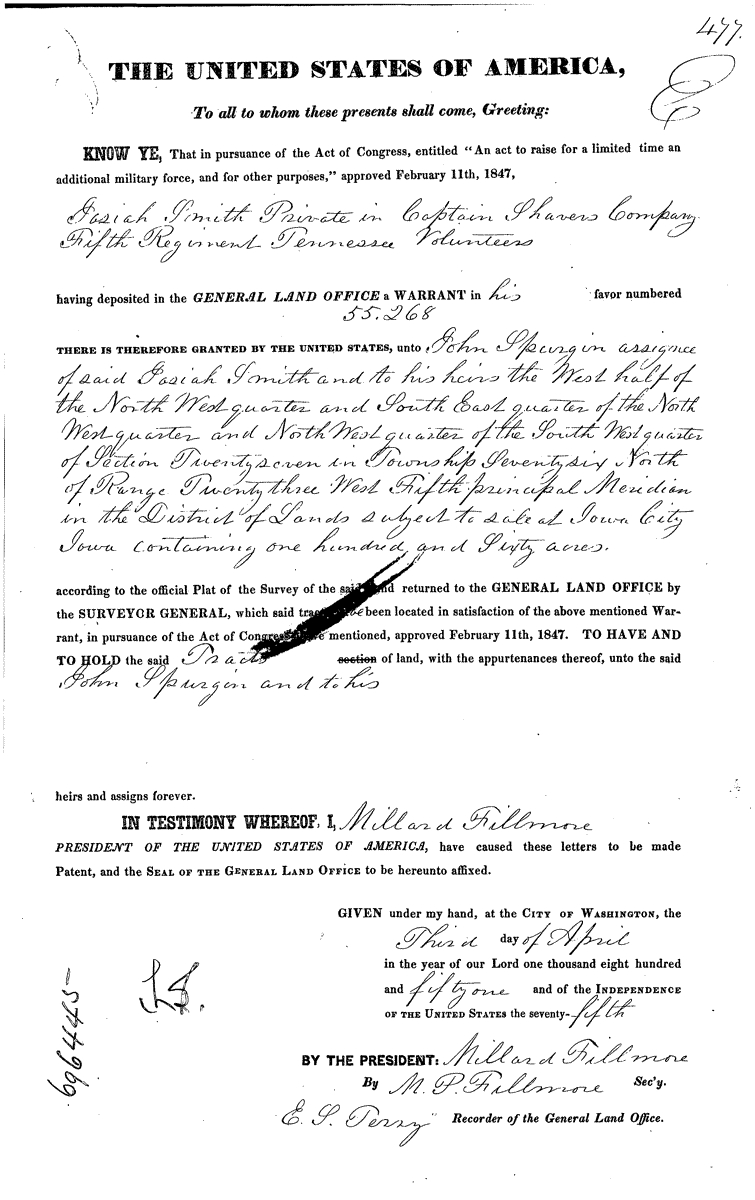 477.
THE UNITED STATES OF AMERICA,
To all to whom these presents shall come, Greeting:
KNOW YE, That in pursuance of the Act of Congress, entitled "An act to raise for a limited time an
additional military force, and for other purposes," approved February 11th, 1847,
Josiah Smith Private in Captain Shavers Company
Fifth Regiment Tennessee Volunteers
having deposited in the GENERAL LAND OFFICE a WARRANT in his favor numbered
55.268
THERE IS THEREFORE GRANTED BY THE UNITED STATES, unto John Spurgin assignee
of said Josiah Smith and to his heirs the West half of
the North West quarter and South East quarter of the North
West quarter and North West quarter of the South West quarter
of Section Twenty seven in Township Seventy six North
of Range Twenty three West Fifth principal Meridian
in the District of Lands subject to sale at Iowa City
Iowa containing one hundred and Sixty acres.
according to the official Plat of the Survey of the said land returned to the GENERAL LAND OFFICE by
the SURVEYOR GENERAL, which said tract been located in satisfaction of the above mentioned War-
rant, in pursuance of the Act of Congress mentioned, approved February 11th, 1847. TO HAVE AND
TO HOLD the said Tracts section of land, with the appurtenances thereof, unto the said
John Spurgin and to his
heirs and assigns forever.
IN TESTIMONY WHEREOF, I, Millard Fillmore
PRESIDENT OF THE UNITED STATES OF AMERICA, have caused these letters to be made
Patent, and the SEAL OF THE GENERAL LAND OFFICE to be hereunto affixed.
GIVEN under my hand, at the CITY OF WASHINGTON, the
Third day of April
in the year of our Lord one thousand eight hundred
and fifty one and of the INDEPENDENCE
OF THE UNITED STATES the seventy-fifth
BY THE PRESIDENT: Millard Fillmore
By M. P. Fillmore Sec'y.
E. S. Terry Recorder of the General Land Office.
L.S.
696445